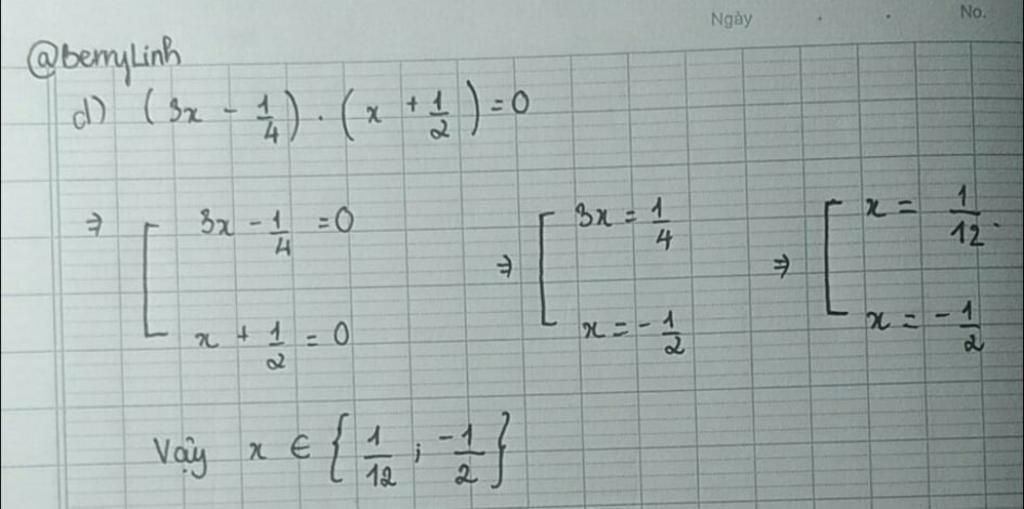 Ngày . . No.
@berryLinh
d) (3x - 1/4) . (x + 1/2) = 0
⇒ [ 3x - 1/4 = 0 ⇒ [ 3x = 1/4 ⇒ [ x = 1/12.
x + 1/2 = 0 x = - 1/2 x = - 1/2
Vậy x ∈ { 1/12 ; -1/2 }